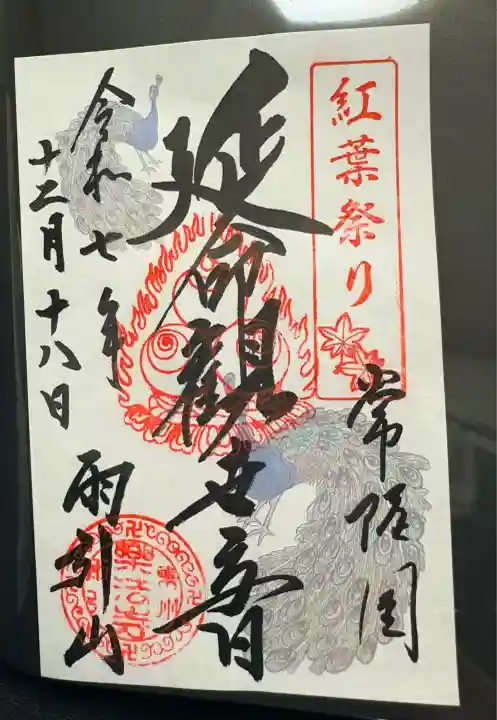 紅葉祭り
常陸国
延命観世音
雨引山
令和七年
十二月十八日